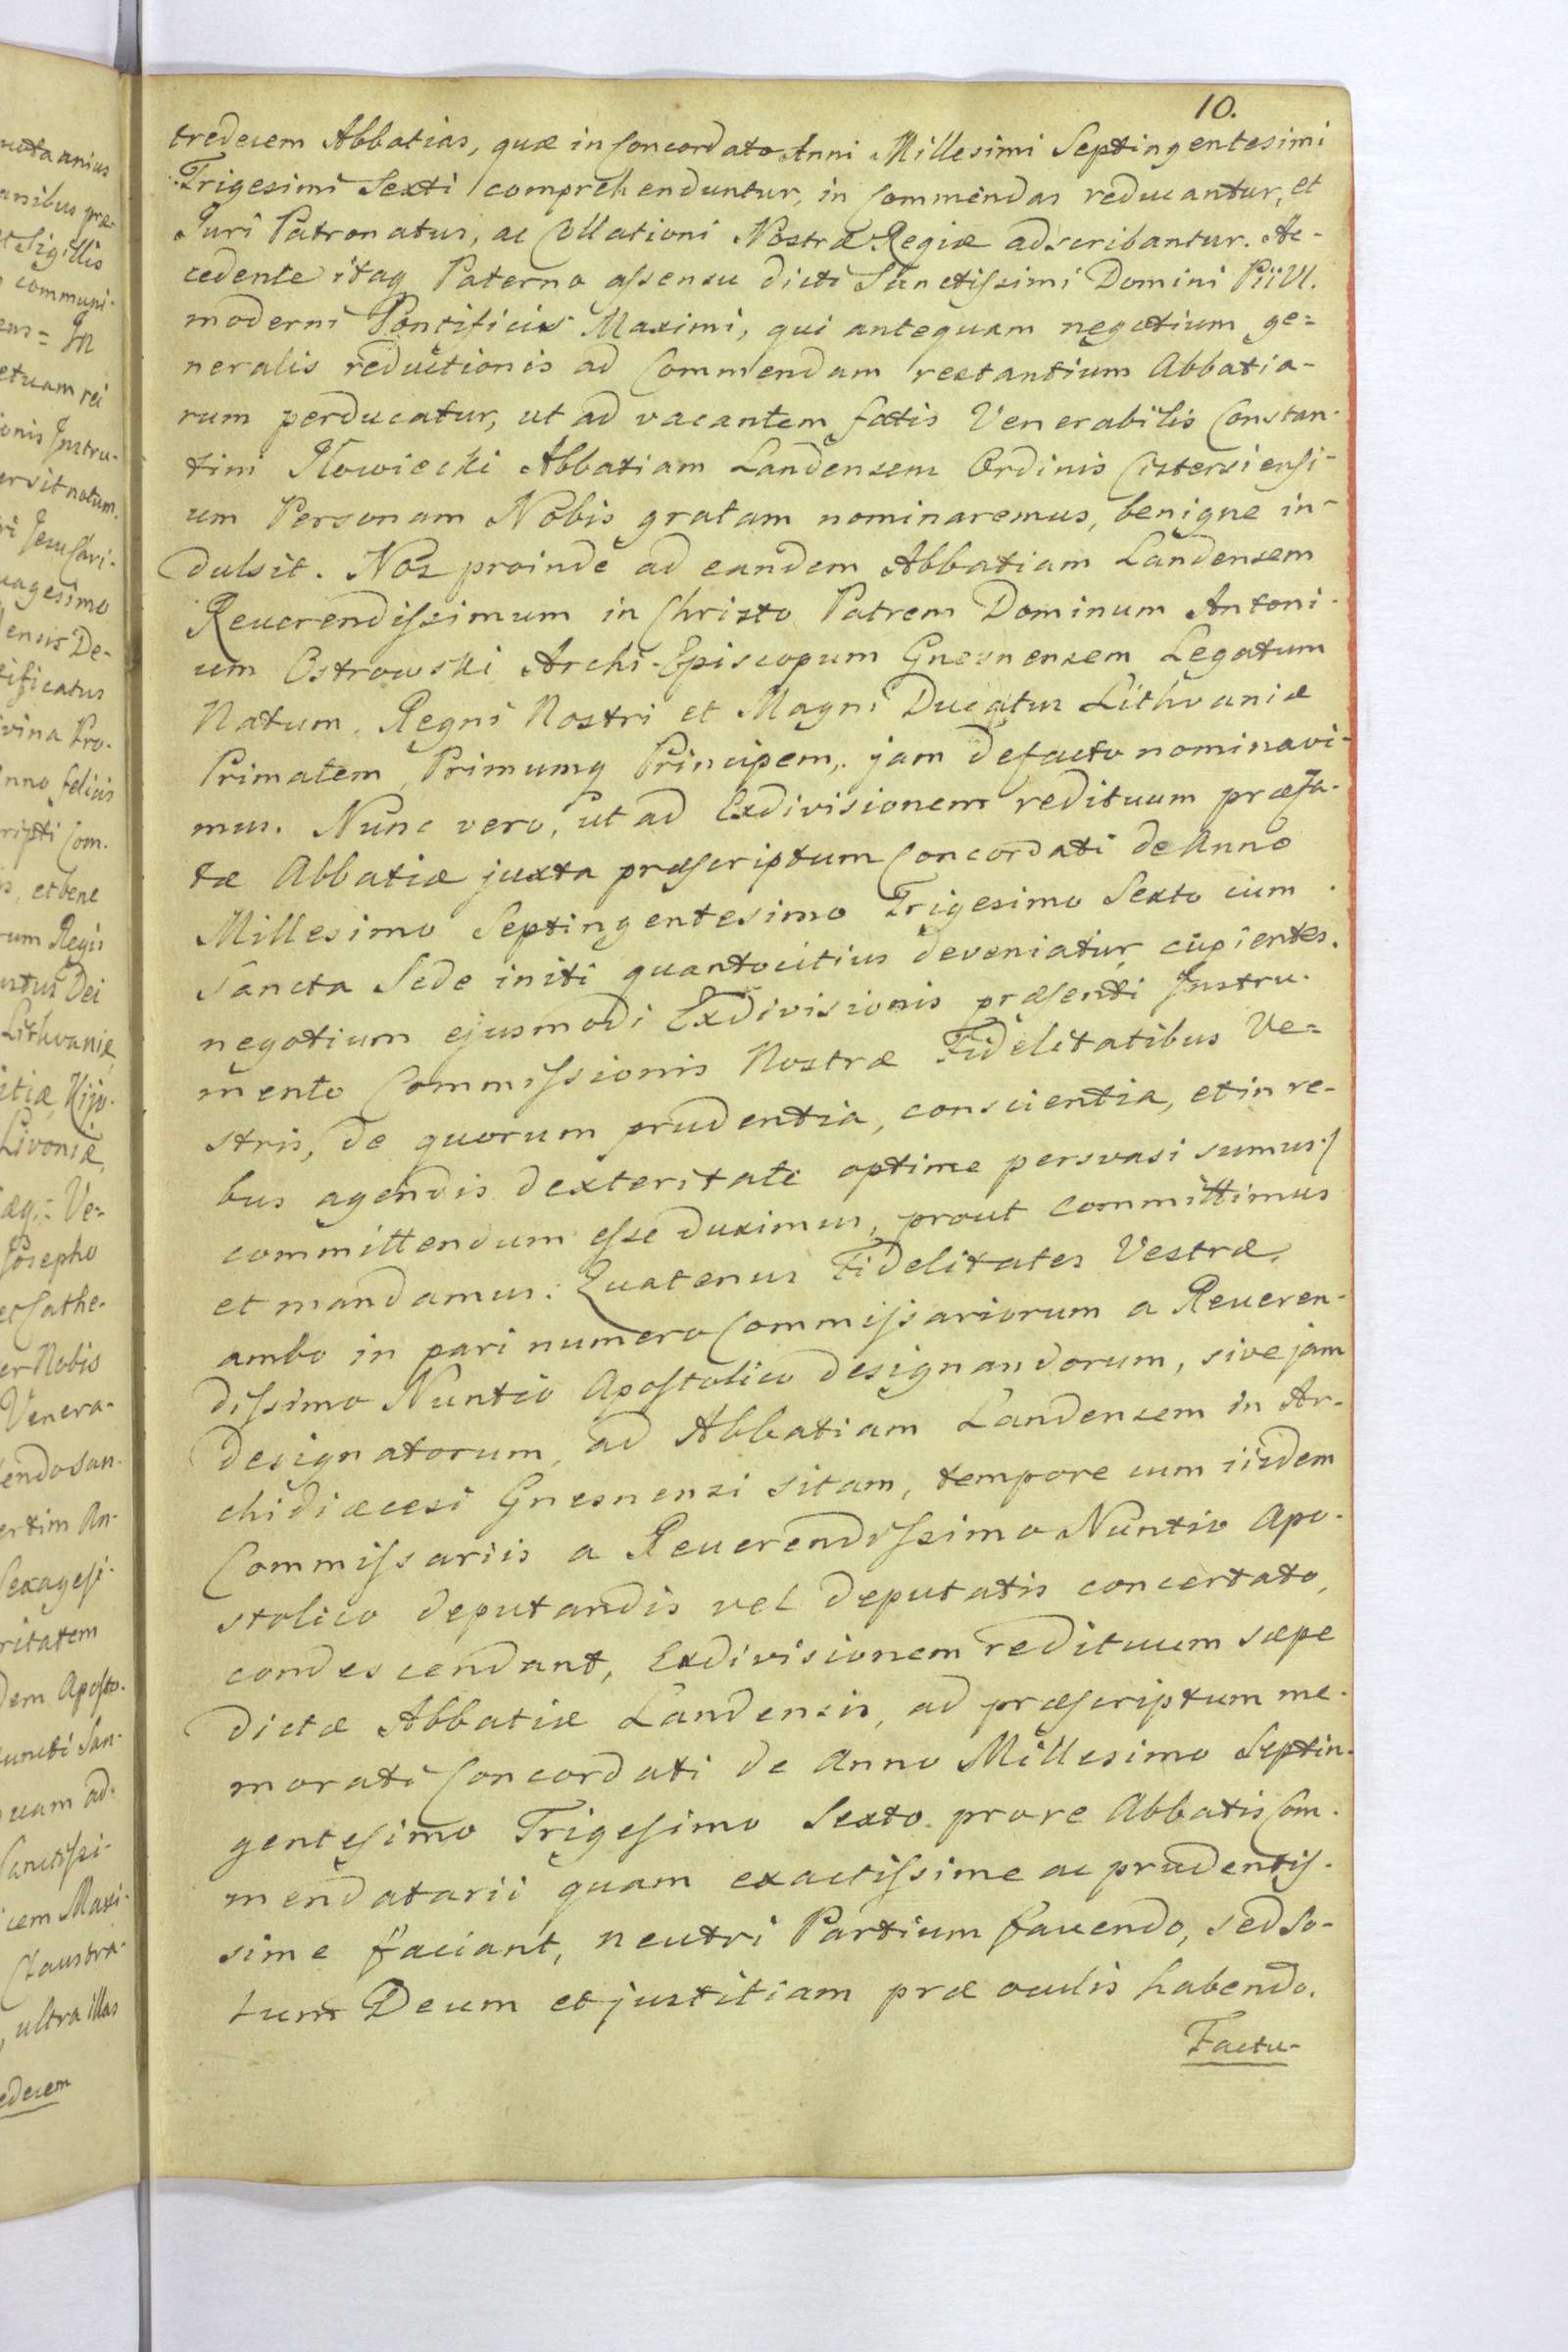 10.
tredecem Abbatias, quæ in Concordato Anni Millesimi Septingentesimi
Trigesimi Sexti comprehenduntur, in Commendas reducantur, et
Juri Patronatus, ac Collationi Nostræ Regiæ adscribantur. Ac-
cedente itaq Paterno assensu dicti Sanctissimi Domini Pii VI.
moderni Pontificis Maximi, qui antequam negotium ge=
neralis reductionis ad Commendam restantium Abbatia-
rum perducatur, ut ad vacantem fatis Venerabilis Constan-
tini Iłowiecki Abbatiam Landensem Ordinis Cistersiensi-
um Personam Nobis gratam nominaremus, benigne in-
dulsit. Nos proinde ad eandem Abbatiam Landensem
Reverendissimum in Christo Patrem Dominum Antoni-
um Ostrowski Archi-Episcopum Gnesnensem Legatum
Natum, Regni Nostri et Magni Ducatus Lithvaniæ
Primatem, Primumq Principem, jam defacto nominavi-
mus. Nunc vero, ut ad Exdivisionem redituum præfa-
tæ Abbatiæ juxta præscriptum Concordati de Anno
Millesimo Septingentesimo Trigesimo Sexto cum
Sancta Sede initi quantocitius deveniatur, cupientes.
negotium ejusmodi Exdivisionis præsenti Instru-
mento Commissionis Nostræ Fidelitatibus Ve=
stris, de quorum prudentia, conscientia, et in re-
bus agendis dexteritate optime persvasi sumus./
committendum esse duximus, prout committimus
et mandamus: Quatenus Fidelitates Vestræ,
ambo in pari numero Commissariorum a Reveren-
dissimo Nuntio Apostolico designandorum, sive jam
designatorum, ad Abbatiam Landensem in Ar-
chidiæcesi Gnesnensi sitam, tempore cum iisdem
Commissariis a Reverendissimo Nuntio Apo-
stolico deputandis vel deputatis concertato,
condescendant, Exdivisionem redituum sæpe
dictæ Abbatiæ Landensis, ad præscriptum me-
morati Concordati de Anno Millesimo Septin-
gentesimo Trigesimo Sexto. pro re Abbatis Com-
mendatarii quam exactissime ac prudentis-
sime faciant, neutri Partium favendo, sed so-
lum Deum et justitiam præ oculis habendo.
Factu-